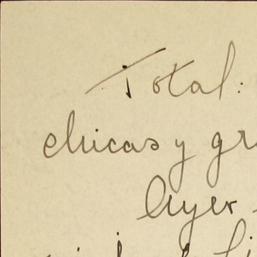 Total:
chicas y gr
Ayer -